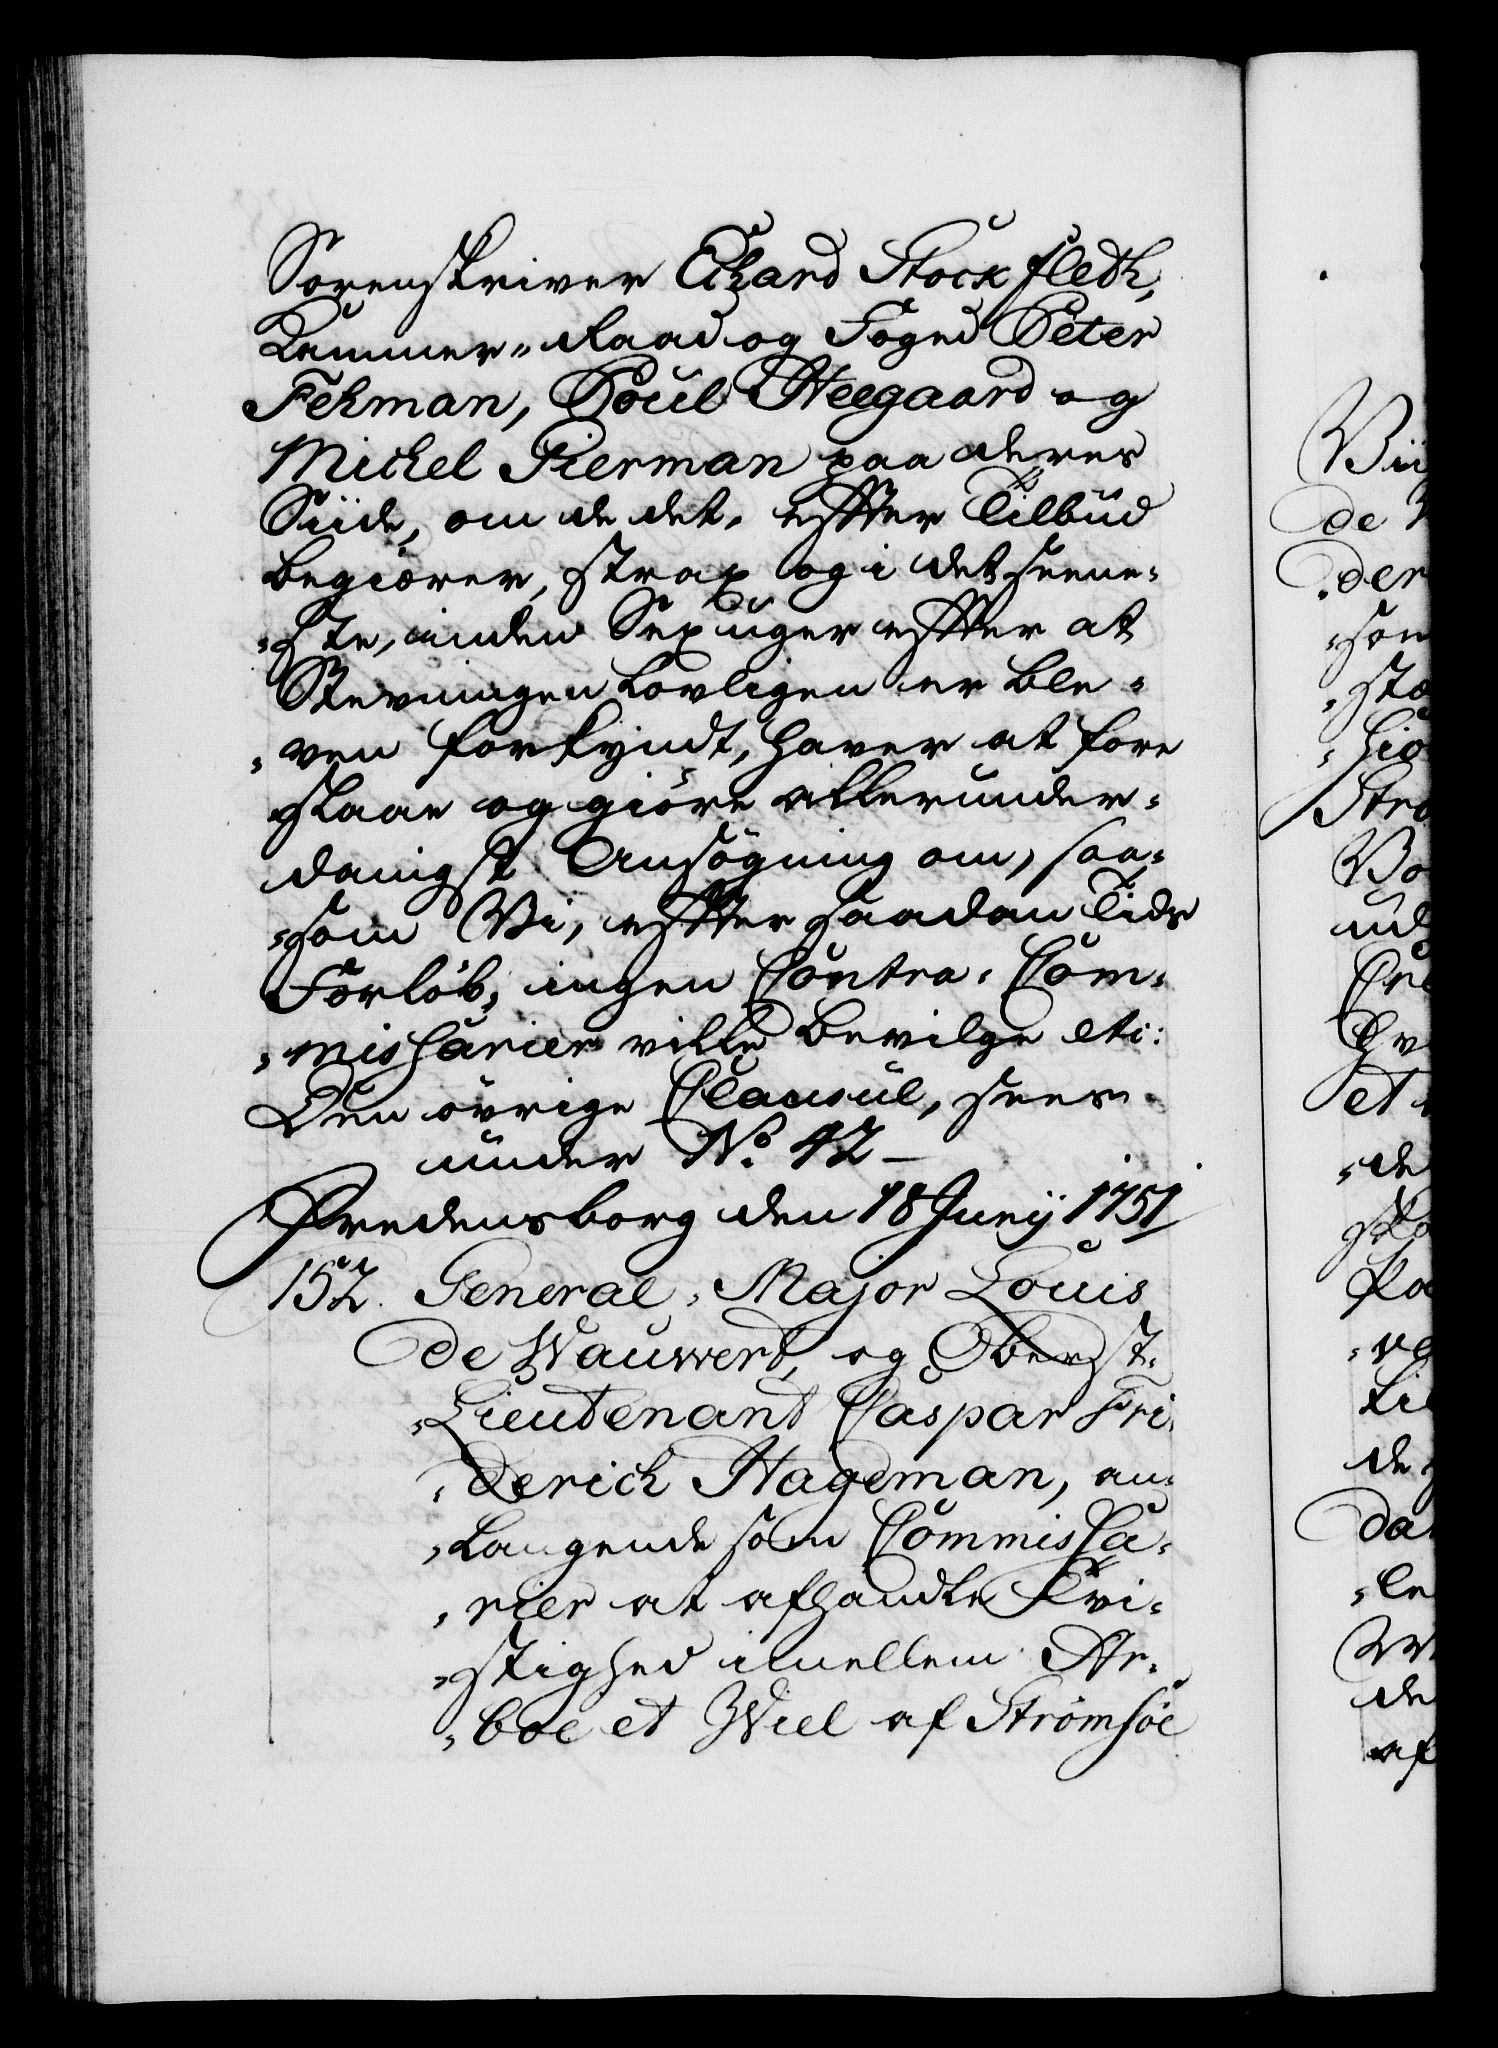 Sorenskriver Eckard Stockfleth,
Kammer-Raad og Foged Peter
Fehman, Poul Heegaard og
Michel Pierman paa deres
Siide, om de det, efter Tilbud
begiærer, strax og i det seene-
-ste, inden Sex uger efter at
Stevningen Lovligen er ble-
-ven forkyndt, haver at fore
slaae og giöre allerunder-
danigst Ansögning om, saa-
-som Vi, efter saadan Tids
Forlöb, ingen Contra-Com-
-missarier ville bevilge etc:
Den övrige Clausul, sees
under No. 42 –
Fredensborg den 18 Junij 1751
152. General-Major Louis
de Wauwert, og Oberst-
-Lieutenant Caspar Fri-
-derich Hageman, an-
-langende som Commissa-
-rier at afhandle Tvi-
-stighed imellem Ar-
-boe et Wiel af Strømsöe
Vii
de
der
-som
-stæ
-hiö
Strö
Bo
ud
Cre
Hv
et
-de
sla
Pa
-ve
til
de
da
-le
de
af